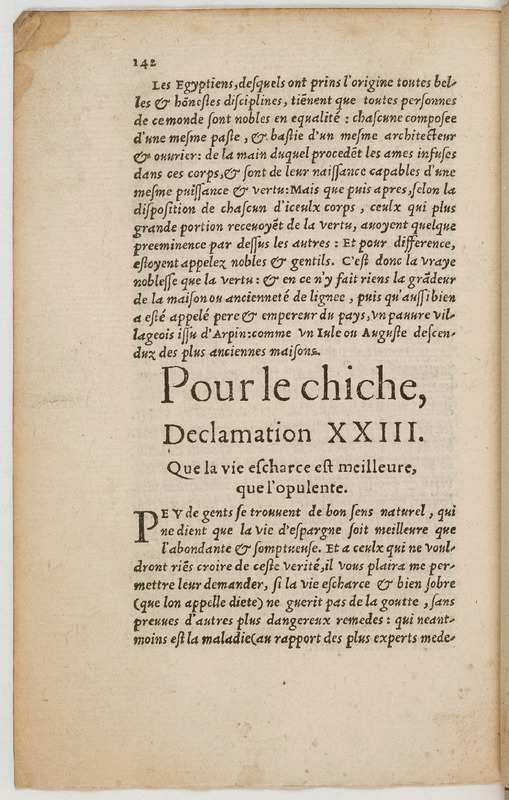 142
Les Egyptiens, desquels ont prins l'origine toutes bel-
les & hõnestes disciplines, tiẽnent que toutes personnes
de ce monde sont nobles en equalité : chascune composee
d'une mesme paste, & bastie d'un mesme architecteur
& ouvrier : de la main duquel procedẽt les ames infuses
dans ces corps, & sont de leur naissance capables d'une
mesme puissance & vertu: Mais que puis apres, selon la
disposition de chascun d'iceulx corps, ceulx qui plus
grande portion recevoyẽt de la vertu, avoyent quelque
preeminence par dessus les autres : Et pour difference,
estoyent appelez nobles & gentils. C'est donc la vraye
noblesse que la vertu : & en ce n'y fait riens la grãdeur
de la maison ou ancienneté de lignee, puis qu'aussi bien
a esté appelé pere & empereur du pays, vn pauure vil-
lageois issu d'Arpin: comme vn Iule ou Auguste descen-
duz des plus anciennes maisons.
Pour le chiche,
Declamation XXIII.
Que la vie escharce est meilleure,
que l'opulente.
PEV de gents se trouuent de bon sens naturel, qui
ne dient que la vie d'espargne soit meilleure que
l'abondante & somptueuse. Et a ceulx qui ne voul-
dront riẽs croire de ceste verité, il vous plaira me per-
mettre leur demander, si la vie escharce & bien sobre
(que lon appelle diete) ne guerit pas de la goutte, sans
preuues d'autres plus dangereux remedes : qui neant-
moins est la maladie (au rapport des plus experts mede-